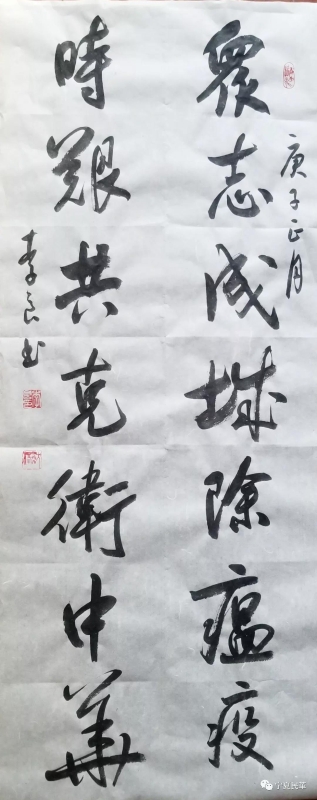 庚子正月
眾志成城除瘟疫
時艱共克衛中華
李良书
宁夏民革